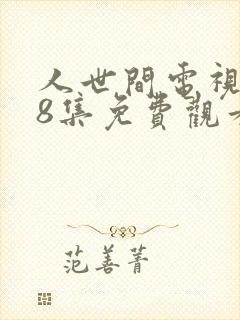 人世間電視
8集免費觀看
范善菁